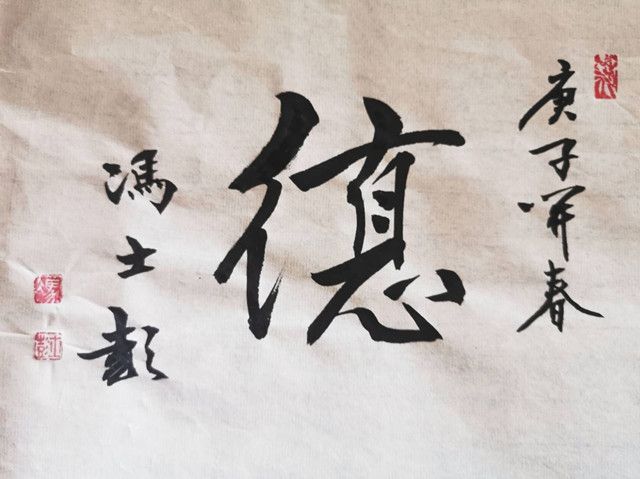 庚子開春
德
馮士彭